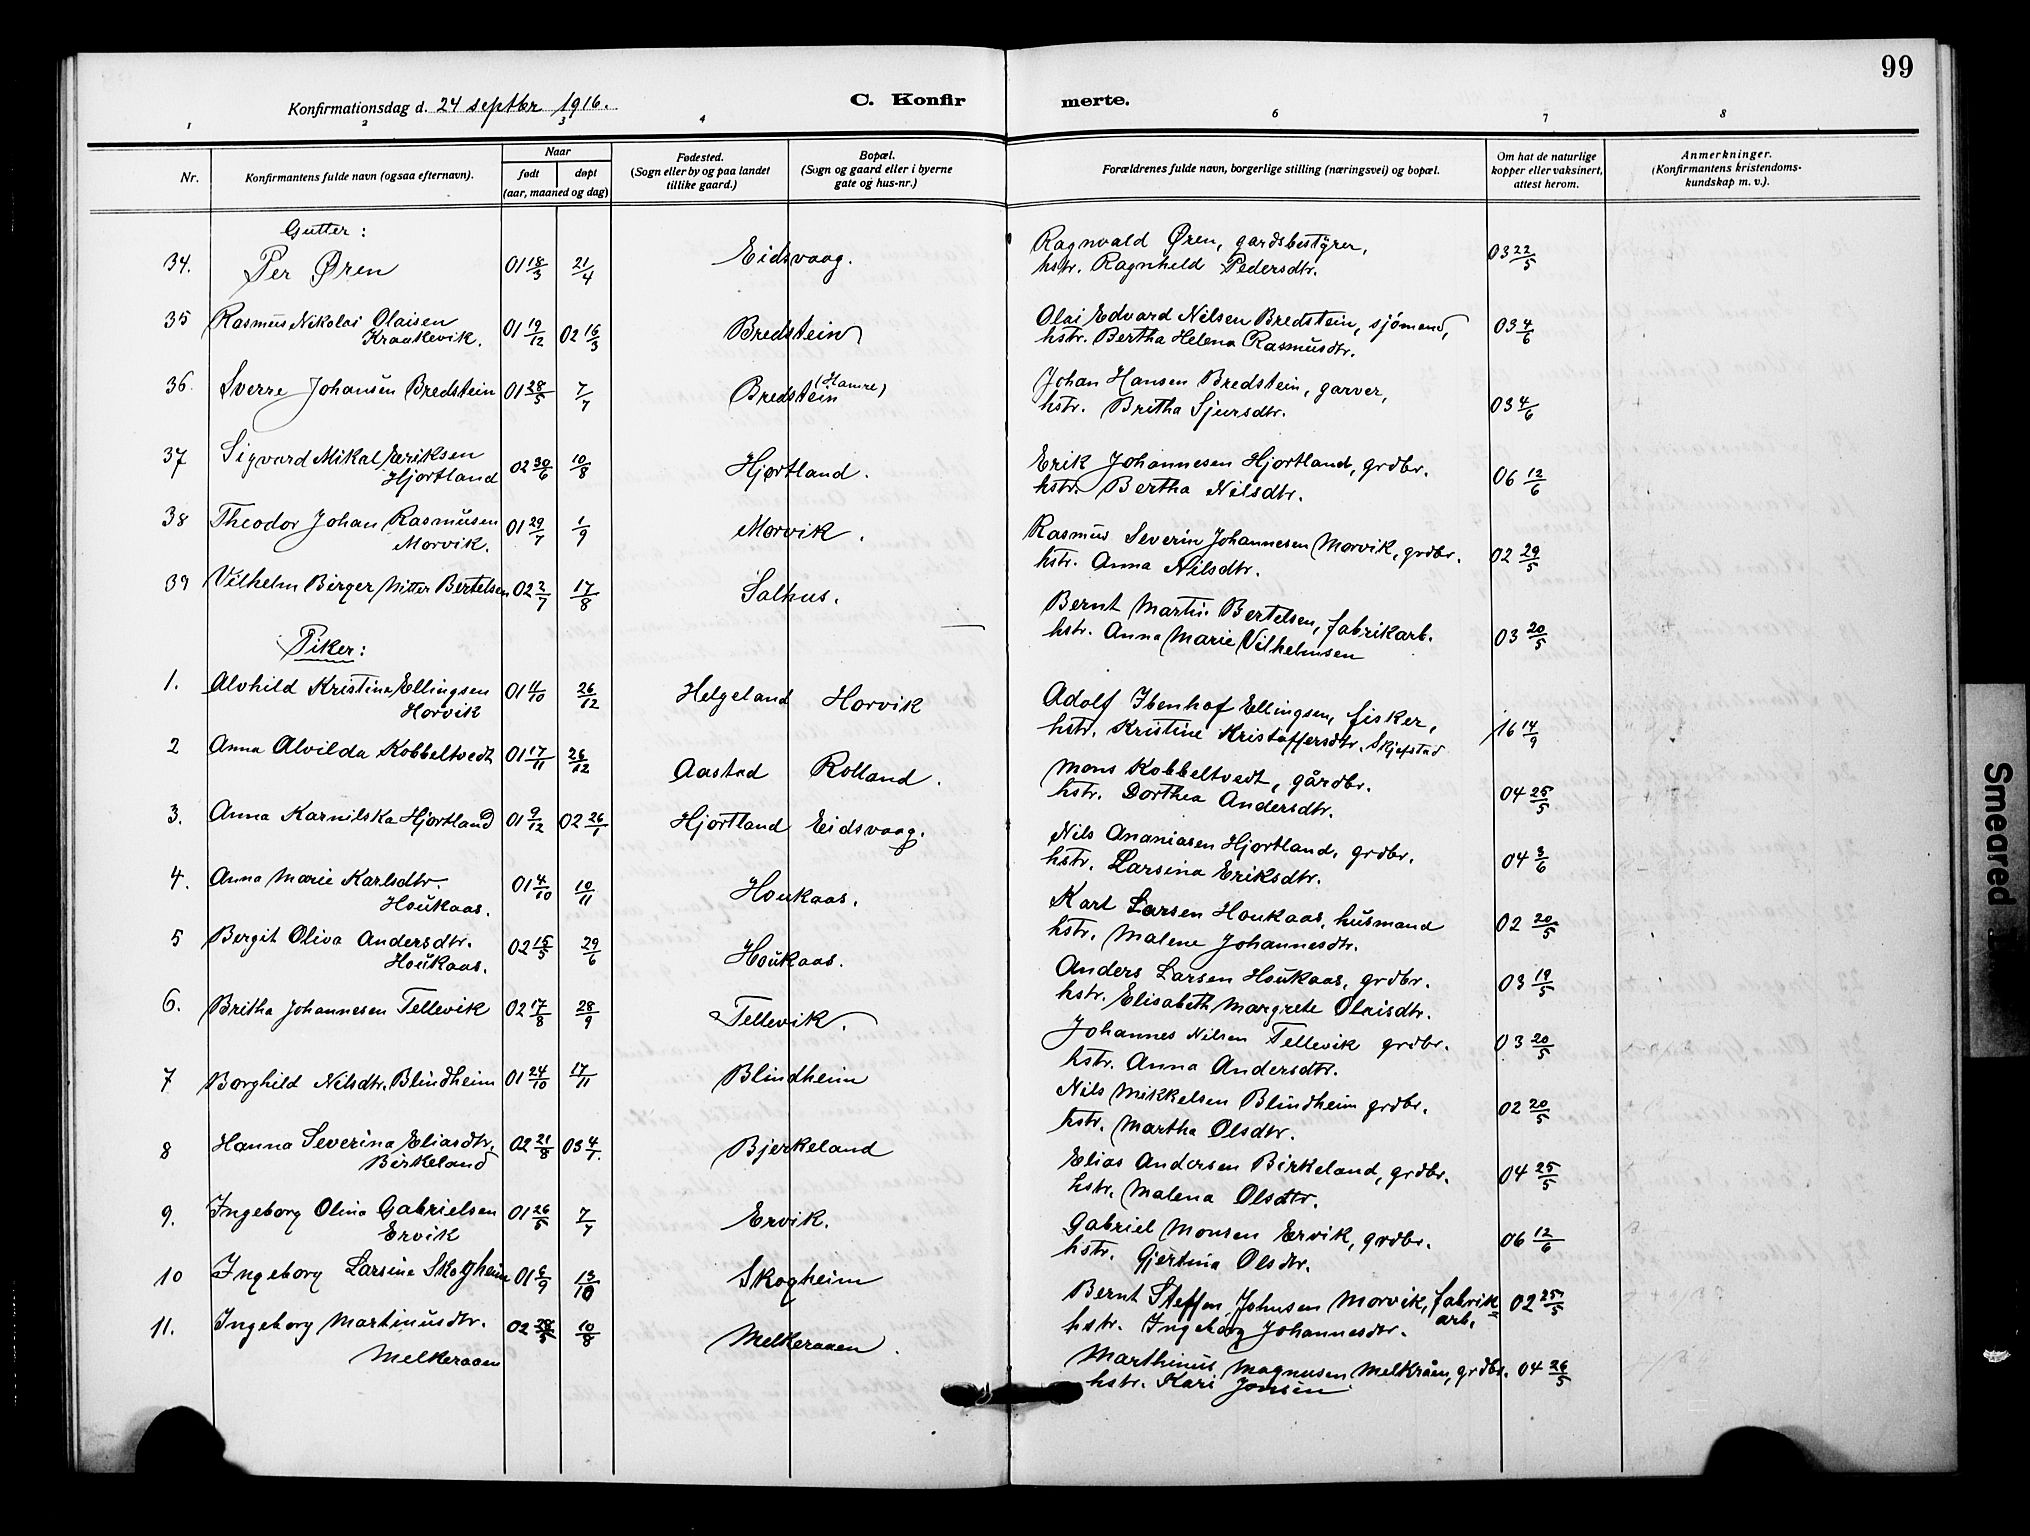 99
Konfirmationsdag d. 24 septbr 1916.
C. Konfir merte.
1 2 3 4 6 7 8
Nr.
Konfirmantens fulde navn (ogsaa efternavn).
Naar
født døpt
(aar, maaned og dag)
Fødested.
(Sogn eller by og paa landet
tillike gaard.)
Bopæl.
(Sogn og gaard eller i byerne
gate og hus-nr.)
Forældrenes fulde navn, borgerlige stilling (næringsvei) og bopæl.
Om hat de naturlige
kopper eller vaksinert,
attest herom.
Anmerkninger.
(Konfirmantens kristendoms-
kundskap m. v.).
Gutter:
34. Per Øren 01 18/3 21/4 Eidsvaag. Ragnvald Øren, gardsbestyrer, 03 22/5
hstr. Ragnhild Pedersdtr.
35 Rasmus Nikolai Olaisen 01 19/12 02 16/3 Bredstein Olai Edvard Nilsen Bredstein, sjömand, 03 4/6
Kraakevik. hstr. Bertha Helena Rasmusdtr.
36. Sverre Johansen Bredstein 01 28/5 7/7 Bredstein (Hamre) Johan Hansen Bredstein, garver, 03 4/6
hstr. Britha Sjursdtr.
37 Sigvard Mikal Eriksen 02 30/6 10/8 Hjortland. Erik Johannesen Hjortland, grdbr. 06 12/6
Hjortland hstr. Bertha Nilsdtr.
38 Theodor Johan Rasmusen 01 29/7 1/9 Morvik. Rasmus Severin Johannesen Morvik, grdbr. 02 29/5
Morvik. hstr. Anna Nilsdtr.
39 Vilhelm Birger Mitter Bertelsen 02 2/7 17/8 Salhus. Bernt Martin Bertelsen, fabrikarb. 03 20/5
hstr. Anna Marie Vilhelmsen
Piker:
1. Alvhild Kristine Ellingsen 01 4/10 26/12 Helgeland Horvik Adolf Ibenhof Ellingsen, fisker, 16 14/9
Horvik hstr. Kristine Kristoffersdtr. Skjefstad
2 Anna Alvilda Kobbeltvedt 01 17/11 26/12 Aastad Rolland. Mons Kobbeltvedt, gårdbr. 04 25/5
hstr. Dorthea Andersdtr.
3. Anna Karnilska Hjortland 01 9/12 02 26/1 Hjortland Eidsvaag. Nils Ananiasen Hjortland, grdbr. 04 3/6
hstr. Larsina Eriksdtr.
4. Anna Marie Karlsdtr. 01 4/10 10/11 Houkaas. Karl Larsen Houkaas, husmand 02 20/5
Houkaas. hstr. Malene Johannesdtr.
5 Bergit Oliva Andersdtr. 02 15/5 29/6 Houkaas. Anders Larsen Houkaas, grdbr. 03 19/5
Houkaas. hstr. Elisabeth Margrete Olaisdtr.
6. Britha Johannesen Tellevik 02 17/8 28/9 Tellevik. Johannes Nilsen Tellevik grdbr. 03 20/5
hstr. Anna Andersdtr.
7 Borghild Nilsdtr. Blindheim 01 24/10 17/11 Blindheim Nils Mikkelsen Blindheim grdbr. 02 20/5
hstr. Martha Olsdtr.
8 Hanna Severina Eliasdtr. 02 21/8 03 4/1. Bjerkeland Elias Andersen Birkeland, grdbr. 04 25/5
Birkeland hstr. Malena Olsdtr.
9. Ingeborg Olina Gabrielsen 01 26/5 7/7 Ervik. Gabriel Monsen Ervik, grdbr. 06 12/6
Ervik hstr. Gjertina Olsdtr.
10 Ingeborg Larsine Skogheim 01 6/9 13/10 Skogheim Bernt Steffen Johnsen Morvik, fabrik= 02 25/5
arb.
hstr. Ingeborg Johannesdtr.
11. Ingeborg Martinusdtr. 02 28/5 10/8 Melkeraaen. Marthinus Magnusen Melkråen, grdbr. 04 26/5
Melkeraaen hstr. Kari Jonsen
Smeared